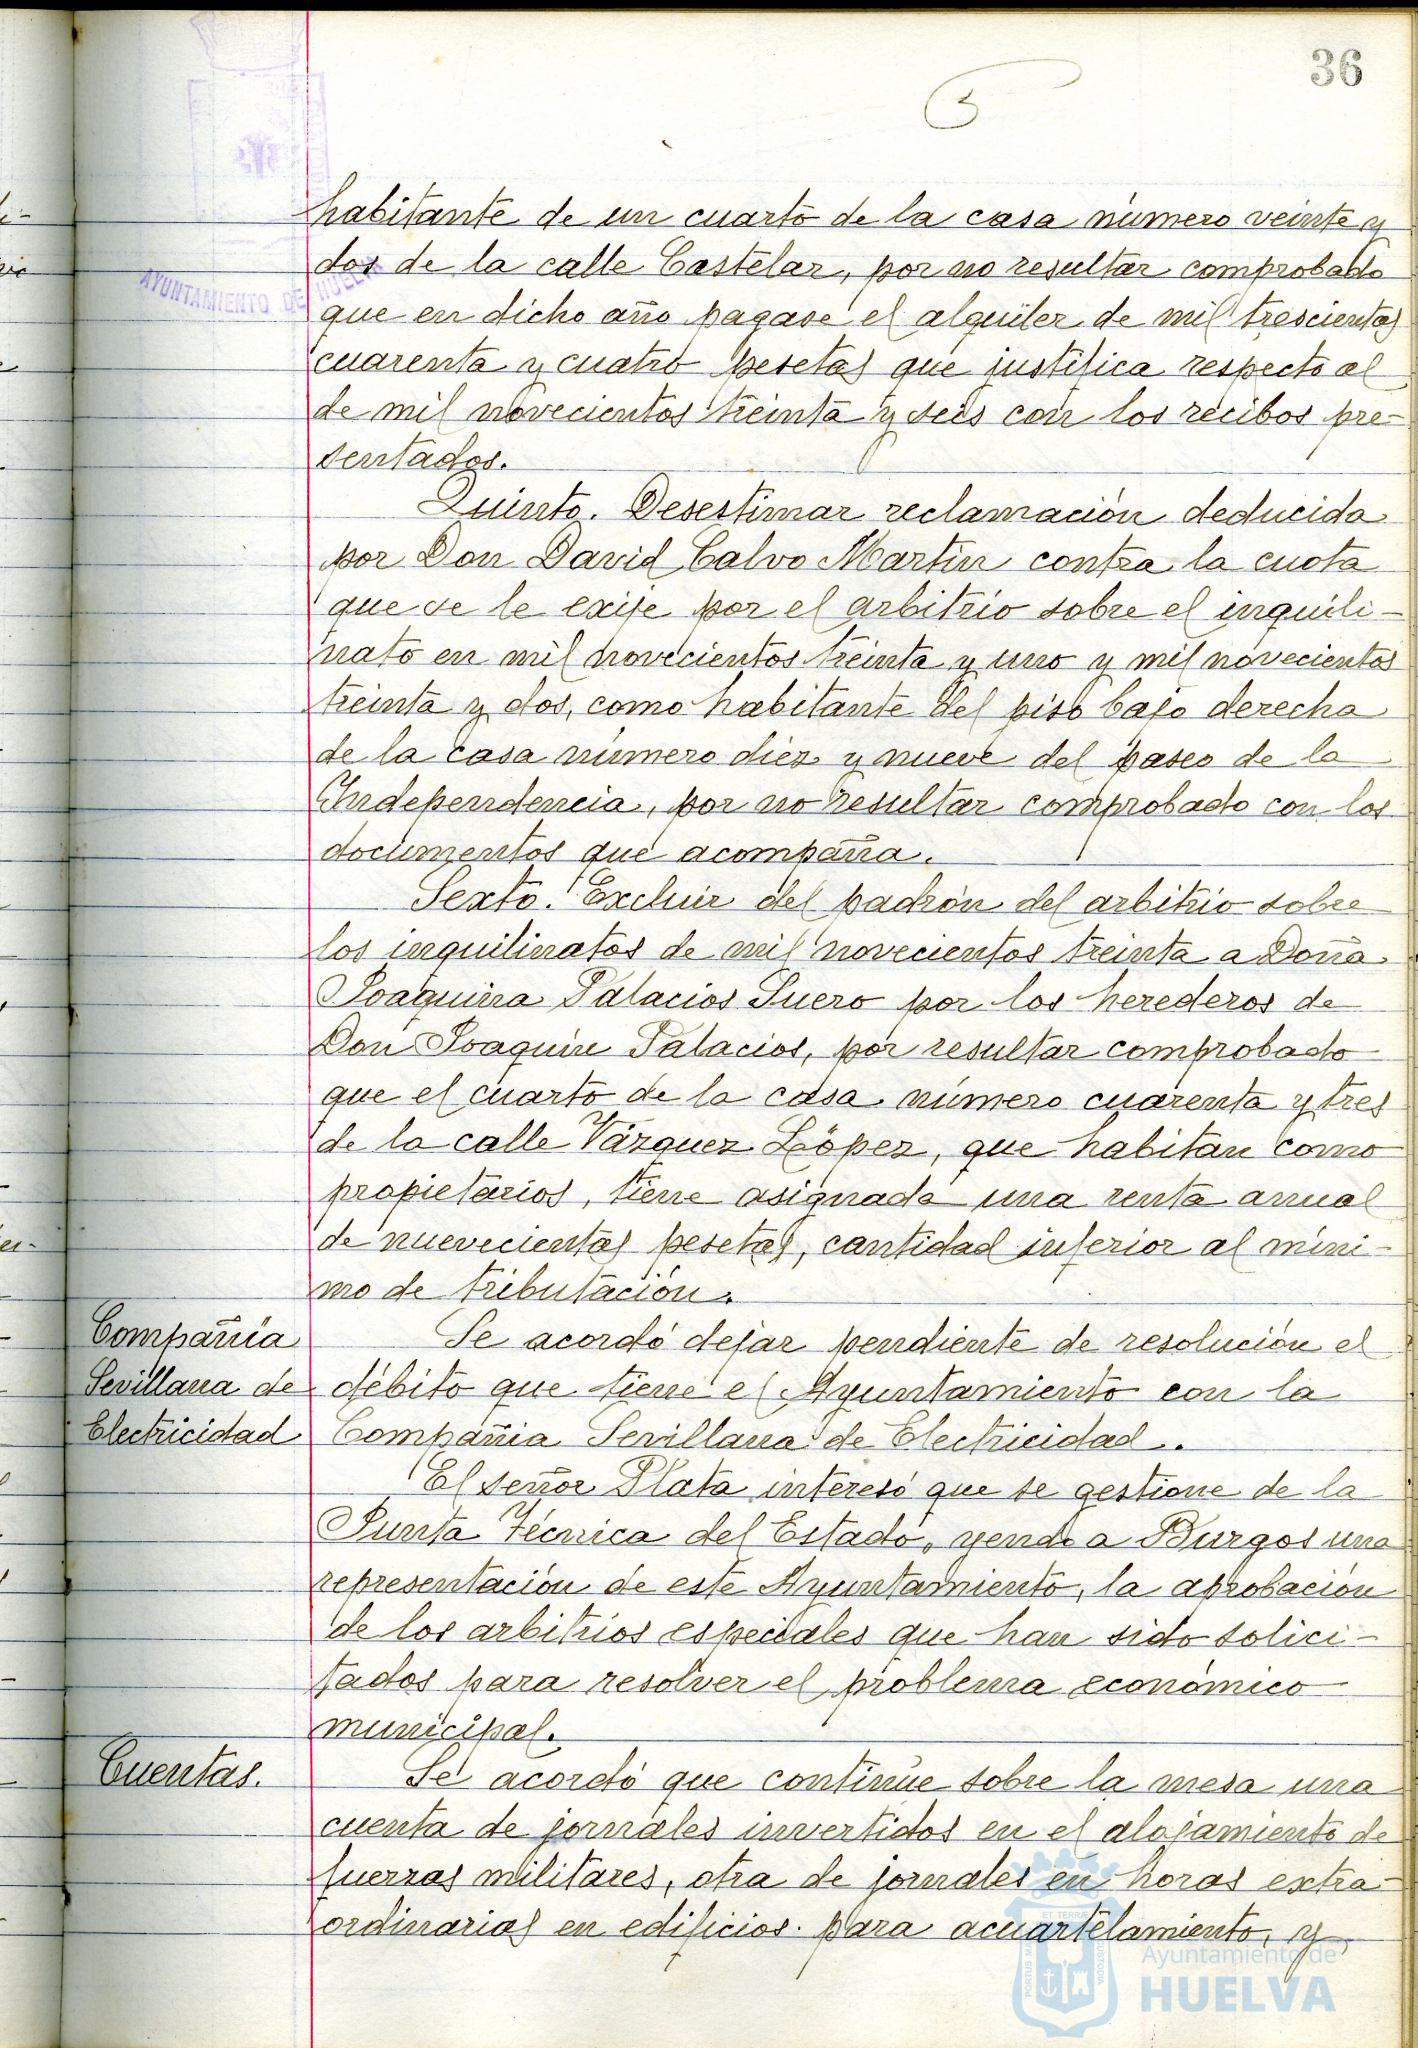 36
habitante de un cuarto de la casa número veinte y
dos de la calle Castelar, por no resultar comprobado
AYUNTAMIENTO DE HUELVA
que en dicho año pagase el alquiler de mil trescientas
cuarenta y cuatro pesetas que justifica respecto al
de mil novecientos treinta y seis con los recibos pre-
sentados.
Quinto. Desestimar reclamación deducida
por Don David Calvo Martín contra la cuota
que se le exije por el arbitrio sobre el inquili-
nato en mil novecientos treinta y uno y mil novecientos
treinta y dos, como habitante del piso bajo derecha
de la casa número diez y nueve del paseo de la
Independencia, por no resultar comprobado con los
documentos que acompaña.
Sexto. Excluir del padrón del arbitrio sobre
los inquilinatos de mil novecientos treinta a Doña
Joaquina Palacios Suero por los herederos de
Don Joaquín Palacios, por resultar comprobado
que el cuarto de la casa número cuarenta y tres
de la calle Vázquez López, que habitan como
propietarios, tiene asignada una renta anual
de nuevecientas pesetas, cantidad inferior al míni-
mo de tributación.
Compañía
Sevillana de
Electricidad
Se acordó dejar pendiente de resolución el
débito que tiene el Ayuntamiento con la
Compañia Sevillana de Electricidad.
El señor Plata interesó que se gestione de la
Junta Técnica del Estado, yendo a Burgos una
representación de este Ayuntamiento, la aprobación
de los arbitrios especiales que han sido solici-
tados para resolver el problema económico
municipal.
Cuentas.
Se acordó que continúe sobre la mesa una
cuenta de jornales invertidos en el alojamiento de
fuerzas militares, otra de jornales en horas extra-
ordinarias en edificios para acuartelamiento, y
Ayuntamiento de
HUELVA